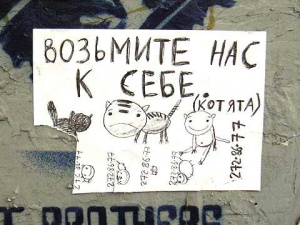 ВОЗЬМИТЕ НАС
К СЕБЕ.
(КОТЯТА)
272-86-77
272-86-77
272-86-77
BROTHERS